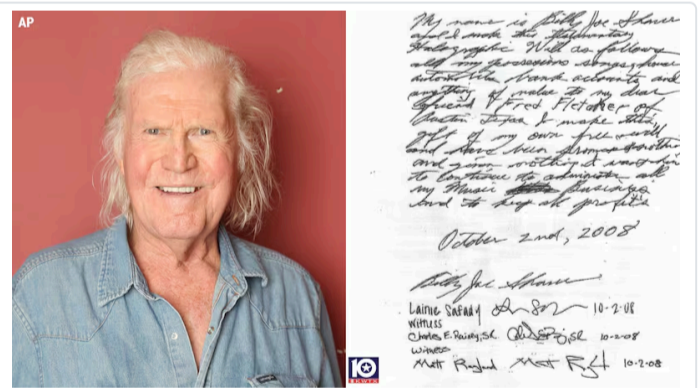 AP
My name is Billy Joe Shaver
and I make this Testamentary
Holographic Will as follows
all my possessions songs, house
automobiles bank accounts and
anything of value to my dear
friend Fred Fletcher of
Austin Texas I make this
gift of my own free will
and have been promised nothing
and given nothing I want him
to continue to administer all
my Music Business
and to keep all profits
October 2nd, 2008
Billy Joe Shaver
Lainie Safady 10-2-08
Witness
Charles E. Rainey, SR 10-2-08
Witness
Matt 10-2-08
10
KWTX